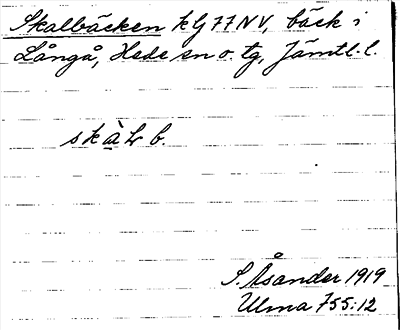 Skalbäcken kG77NV, bäck i
Långå, Hede sn o. tg, Jämtl. l.
skàLb.
S. Åsander 1919
Ulma 755:12